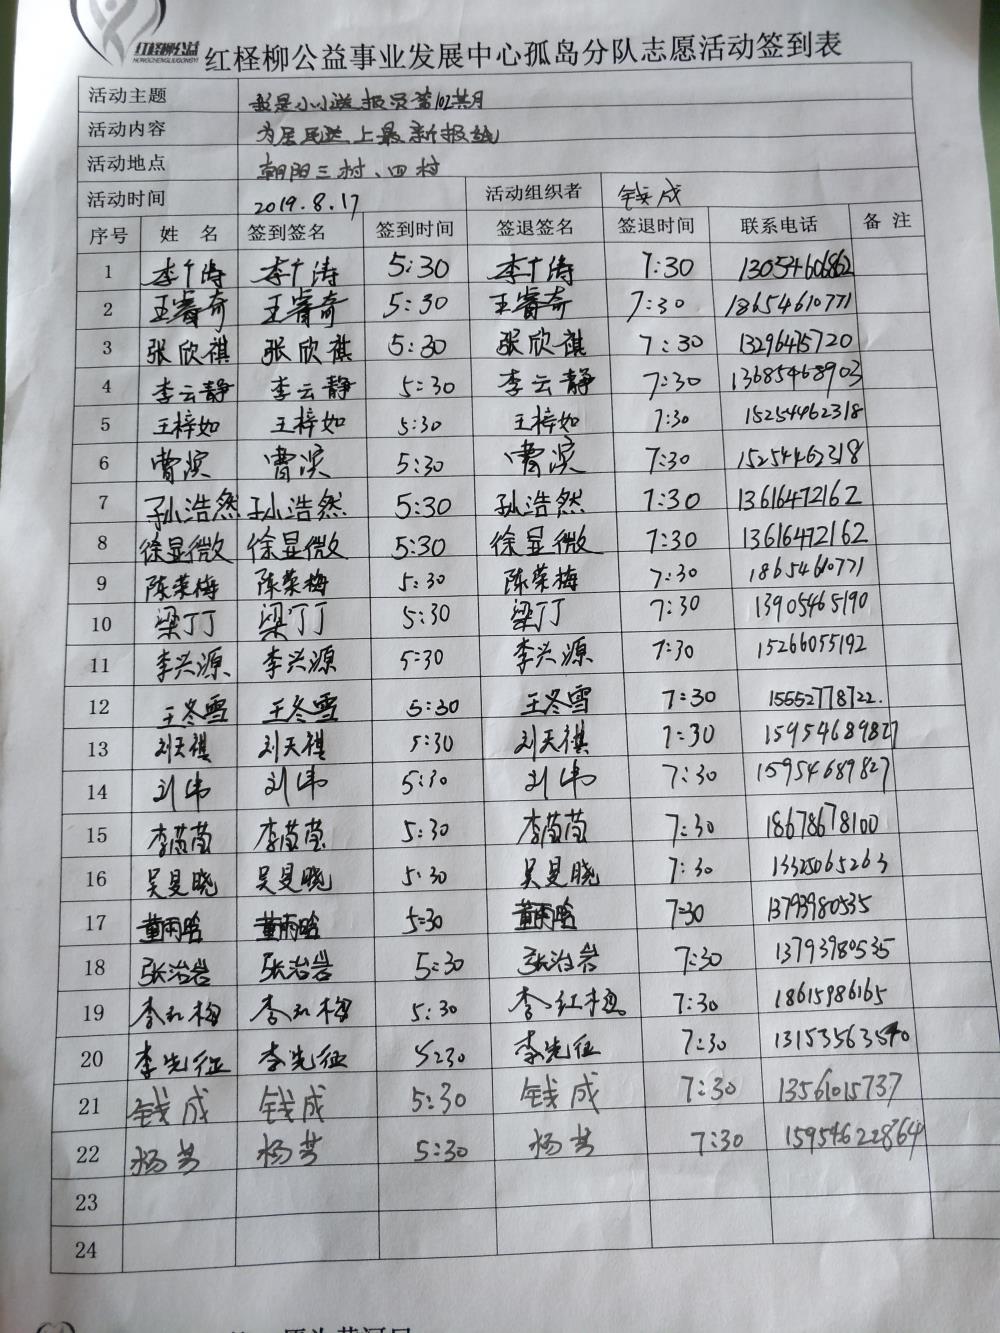 红柽柳公益
HONGCHENGLIUGONGYI
红柽柳公益事业发展中心孤岛分队志愿活动签到表
活动主题 我是小小送报员第102期
活动内容 为居民送上最新报纸
活动地点 朝阳三村、四村
活动时间 2019.8.17 活动组织者 钱成
序号 姓 名 签到签名 签到时间 签退签名 签退时间 联系电话 备 注
1 李广涛 李广涛 5:30 李广涛 7:30 13054606862
2 王睿奇 王睿奇 5:30 王睿奇 7:30 18654610771
3 张欣祺 张欣祺 5:30 张欣祺 7:30 13296415720
4 李云静 李云静 5:30 李云静 7:30 13685468903
5 王梓如 王梓如 5:30 王梓如 7:30 15254462318
6 曹滨 曹滨 5:30 曹滨 7:30 15254462318
7 孙浩然 孙浩然 5:30 孙浩然 7:30 13616472162
8 徐显微 徐显微 5:30 徐显微 7:30 13616472162
9 陈荣梅 陈荣梅 5:30 陈荣梅 7:30 18654610771
10 梁丁丁 梁丁丁 5:30 梁丁 7:30 13905465190
11 李兴源 李兴源 5:30 李兴源 7:30 15266055192
12 王冬雪 王冬雪 5:30 王冬雪 7:30 15552778722.
13 刘天祺 刘天祺 5:30 刘天祺 7:30 15954689827
14 刘伟 刘伟 5:30 刘伟 7:30 15954689827
15 李莹莹 李莹莹 5:30 李莹莹 7:30 18678678100
16 吴旻晓 吴旻晓 5:30 吴旻晓 7:30 13325065263
17 董雨晗 董雨晗 5:30 董雨晗 7:30 13793980535
18 张治岩 张治岩 5:30 张治岩 7:30 13793980535
19 李红梅 李红梅 5:30 李红梅 7:30 18615986165
20 李先征 李先征 5:30 李先征 7:30 13153563540
21 钱成 钱成 5:30 钱成 7:30 13561015737
22 杨芳 杨芳 5:30 杨芳 7:30 15954622864
23
24